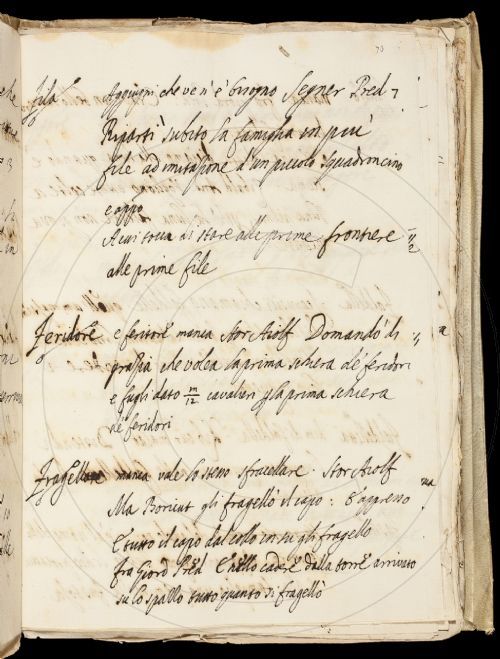 70
fila Aggiugni che ve n'è bisogno Segner Pred 7
Ripartì subito la famiglia in più
file ad imitazione d'un piccolo squadroncino
e appo
A cui tocca di stare alle prime frontiere
alle prime file
Feridore e feritore manca Stor Aiolf Domandò di
grazia che volea la prima schiera de feridori
e fugli dato m/12 cavalieri p la prima schiera
de feridori
Fragellare manca vale lo stesso sfracellare. Stor Aiolf
Ma Boricut gli fragellò il capo: E appresso
E tutto il capo dal collo in su gli fragello
fra Giord Pred E nello cadere dalla torre arrivato
su lo spallo tutto quanto si fragellò